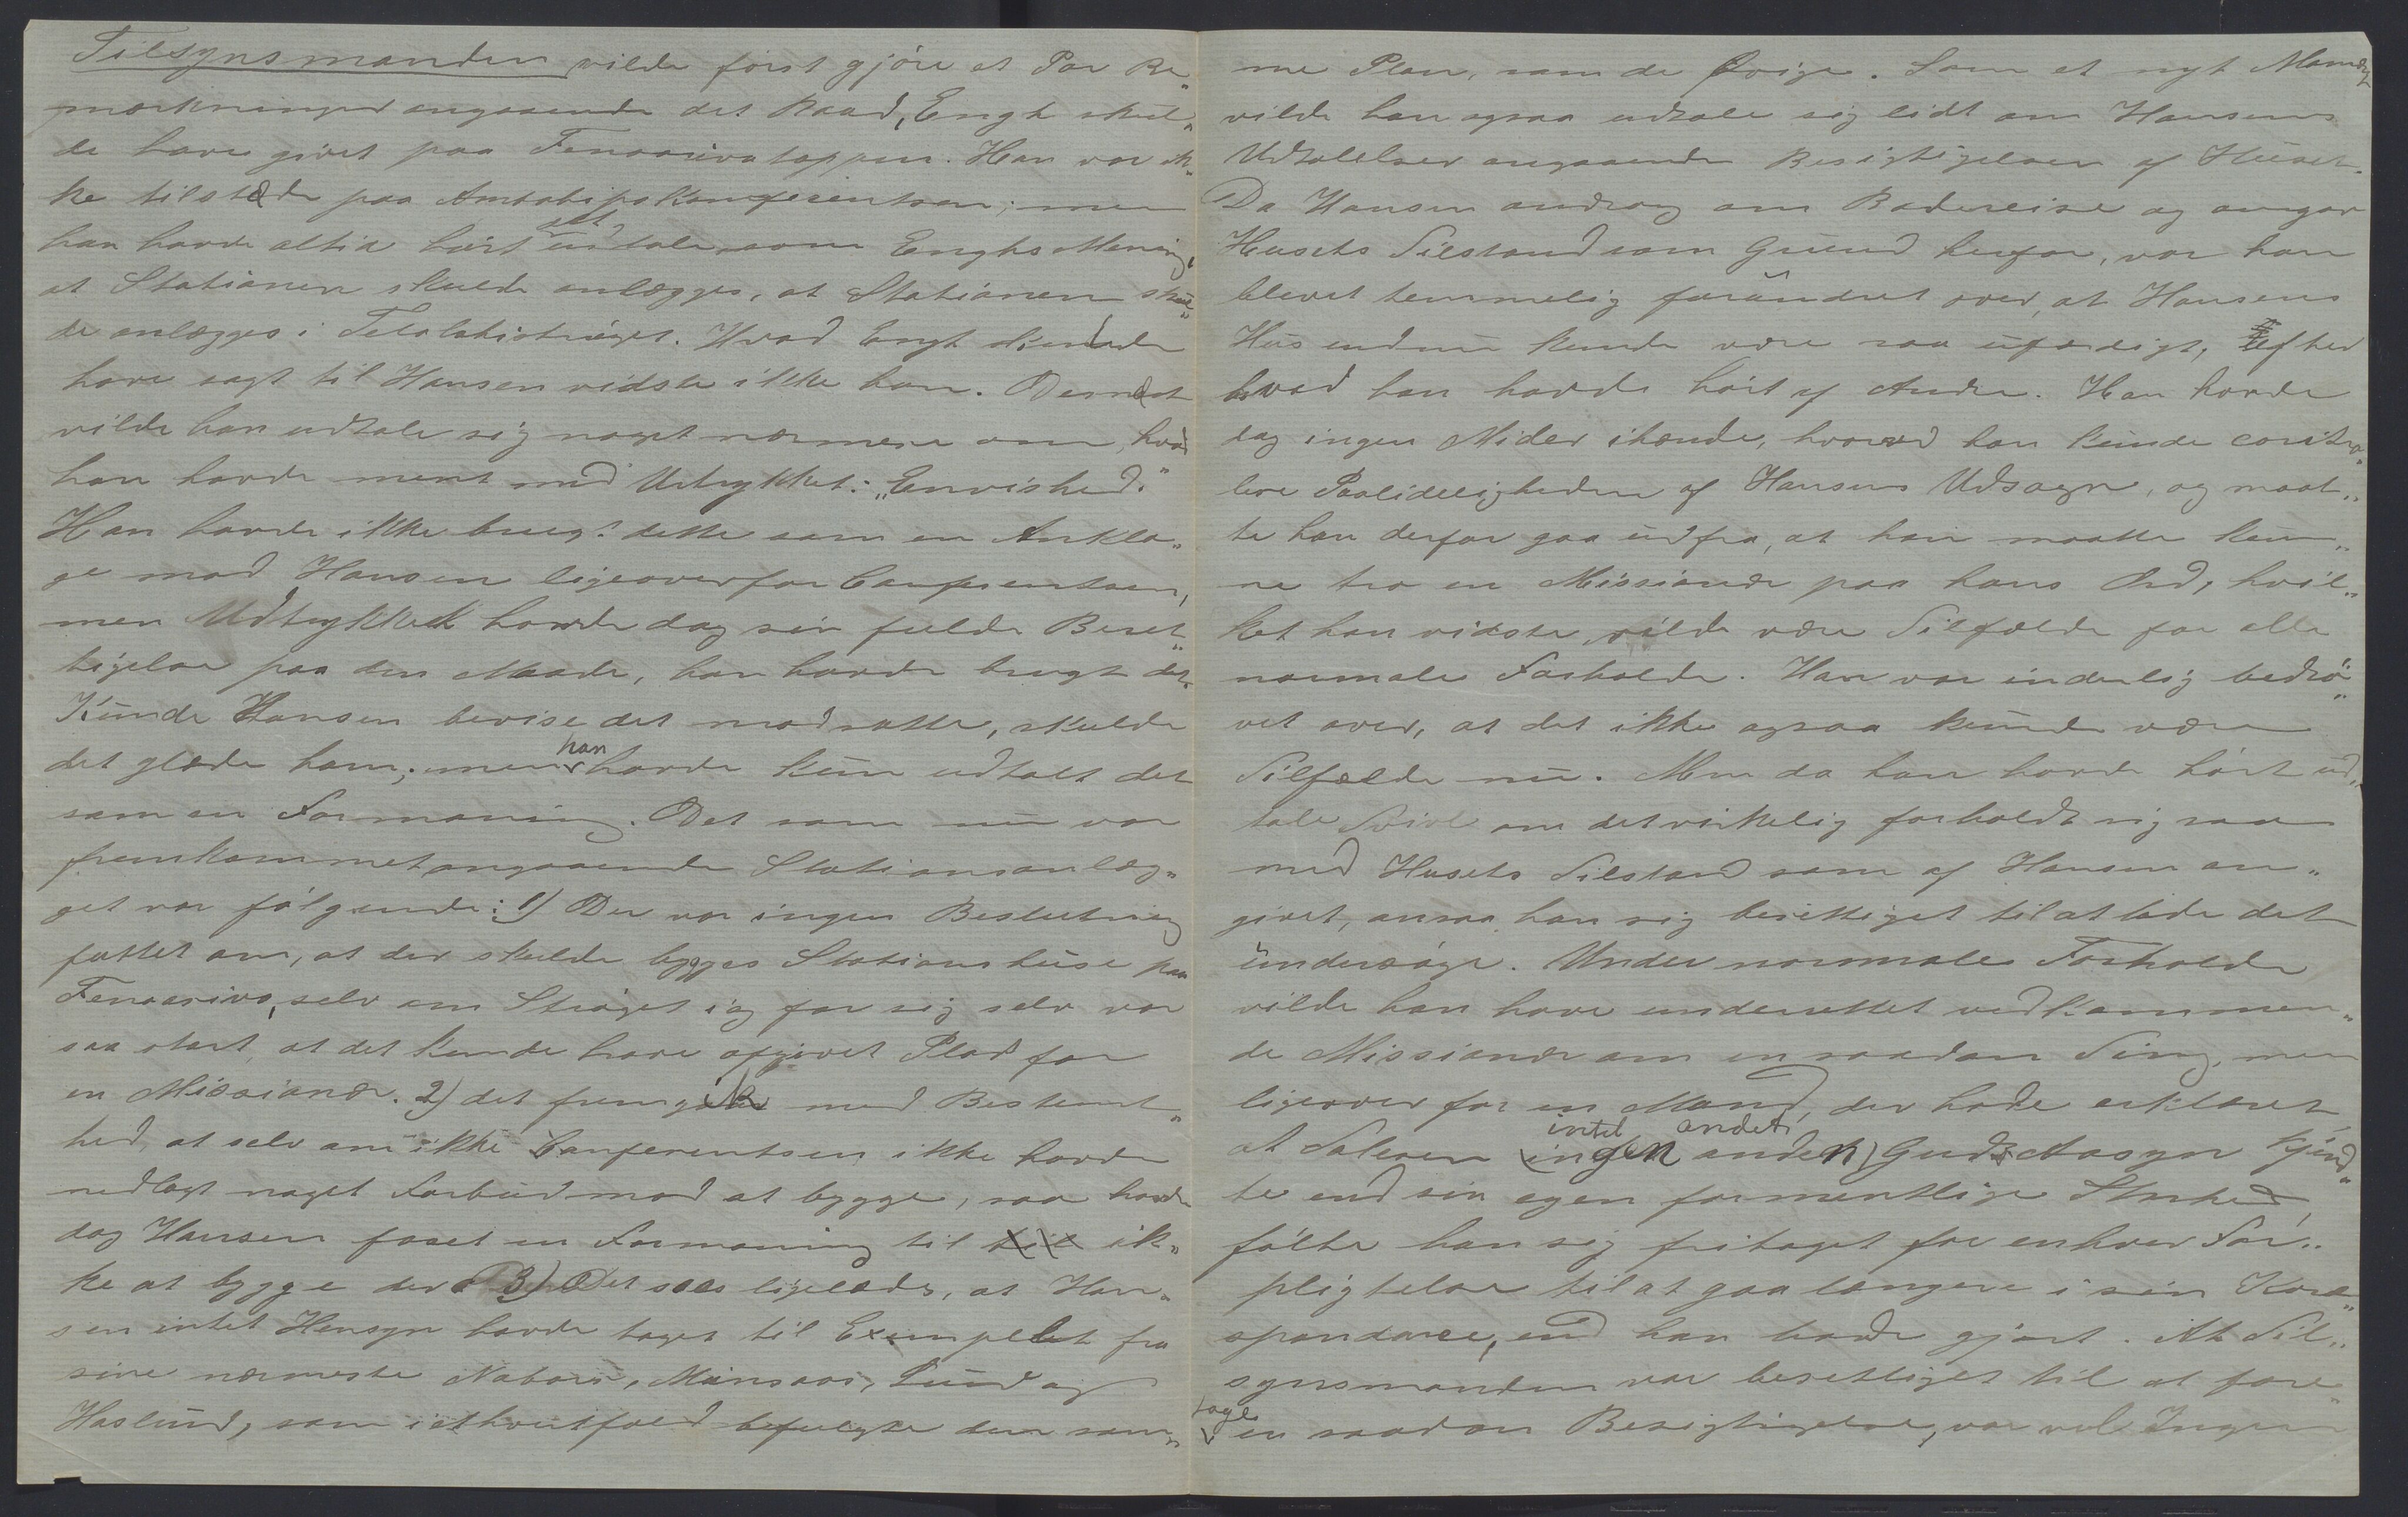 Tilsynsmanden vilde først gjøre et Par Be„
mærkninger angaaende det Raad, Engh skul„
de have givet paa Fenoarivotoppen. Han var ik„
ke tilstede paa Antsobipakonferentsen; men
han havde altid hørt det udtale som Enghs Mening,
at Stationen skulde anlægges, at Stationen skul„
de anlægges i Strøget. Hvad Engh kunde
have sagt til Hansen vidste ikke han. Dernæst
vilde han udtale sig noget nærmere om, hvad
han havde ment med Udtrykket: „Envished.“
Han havde ikke brugt dette som en Ankla„
ge mod Hansen ligeoverfor Conferentsen,
men Udtrykket havde dog sin fulde Beret„
tigelse paa den Maade, han havde brugt det.
Kunde Hansen bevise det modsatte, skulde
det glæde ham; men han havde kun udtalt det
som en Formaning. Det som nu var
fremkommet angaaende Stationsanlæg„
get var følgende: 1) Der var ingen Beslutning
fattet om, at der skulde bygges Stationshuse paa
Fenoarivo, selv om Strøget i og for sig selv var
saa stort at det kunde have afgivet Plads for
en Missionær. 2) det fremgik med Bestemt„
hed, at selv om ikke Conferentsen ikke havde
nedlagt noget Forbud mod at bygge, saa havde
dog Hansen faaet en Formaning til til ik„
ke at bygge der. 3) Det sees ligeledes, at Han„
sen intet Hensyn havde taget til Exemplet fra
sine nærmeste Naboer, Minsaas, Lund og
Haslund, som i ethvertfald befulgte den sam„
me Plan, som de Øvrige. Som et nyt Moment
vilde han ogsaa udtale sig lidt om Hansens
Udtalelser angaaende Besigtigelsen af Huset.
Da Hansen androg om Badereise og angav
Husets Tilstand som Grund herfor, var han
blevet temmelig forundret over, at Hansens
Hus endnu kunde være saa ufærdigt, efter
hvad han havde hørt af Andre. Han havde
dog ingen Midler ihænde, hvorved han kunde contro„
lere Paalideligheden af Hansens Udsagn, og maat„
te han derfor gaa ud fra, at han maatte kun„
ne tro en Missionær paa hans Ord, hvil„
ket han vidste, vilde være Tilfælde for alle
normale Forholde. Han var inderlig bedrø„
vet over, at det ikke ogsaa kunde være
Tilfælde nu. Men da han havde hørt ud„
tale Tvivl om det virkelig forholdt sig saa
med Husets Tilstand som af Hansen an„
givet, ansaa han sig berettiget til at lade det
undersøge. Under normale Forholde
vilde han have underrettet vedkommen„
de Missionær om en saadan Ting, men
ligeover for en Mand, der havde erklæret
at Taleren intet andet Guds Aasyn kjend„
te end sin egen formentlige Storhed,
følte han sig fritaget for enhver For„
pligtelse til at gaa længere i sin Kore„
spondance, end han havde gjort. At Til„
synsmanden var berettiget til at fore„
tage en saadan Besigtigelse, var vel Ingen